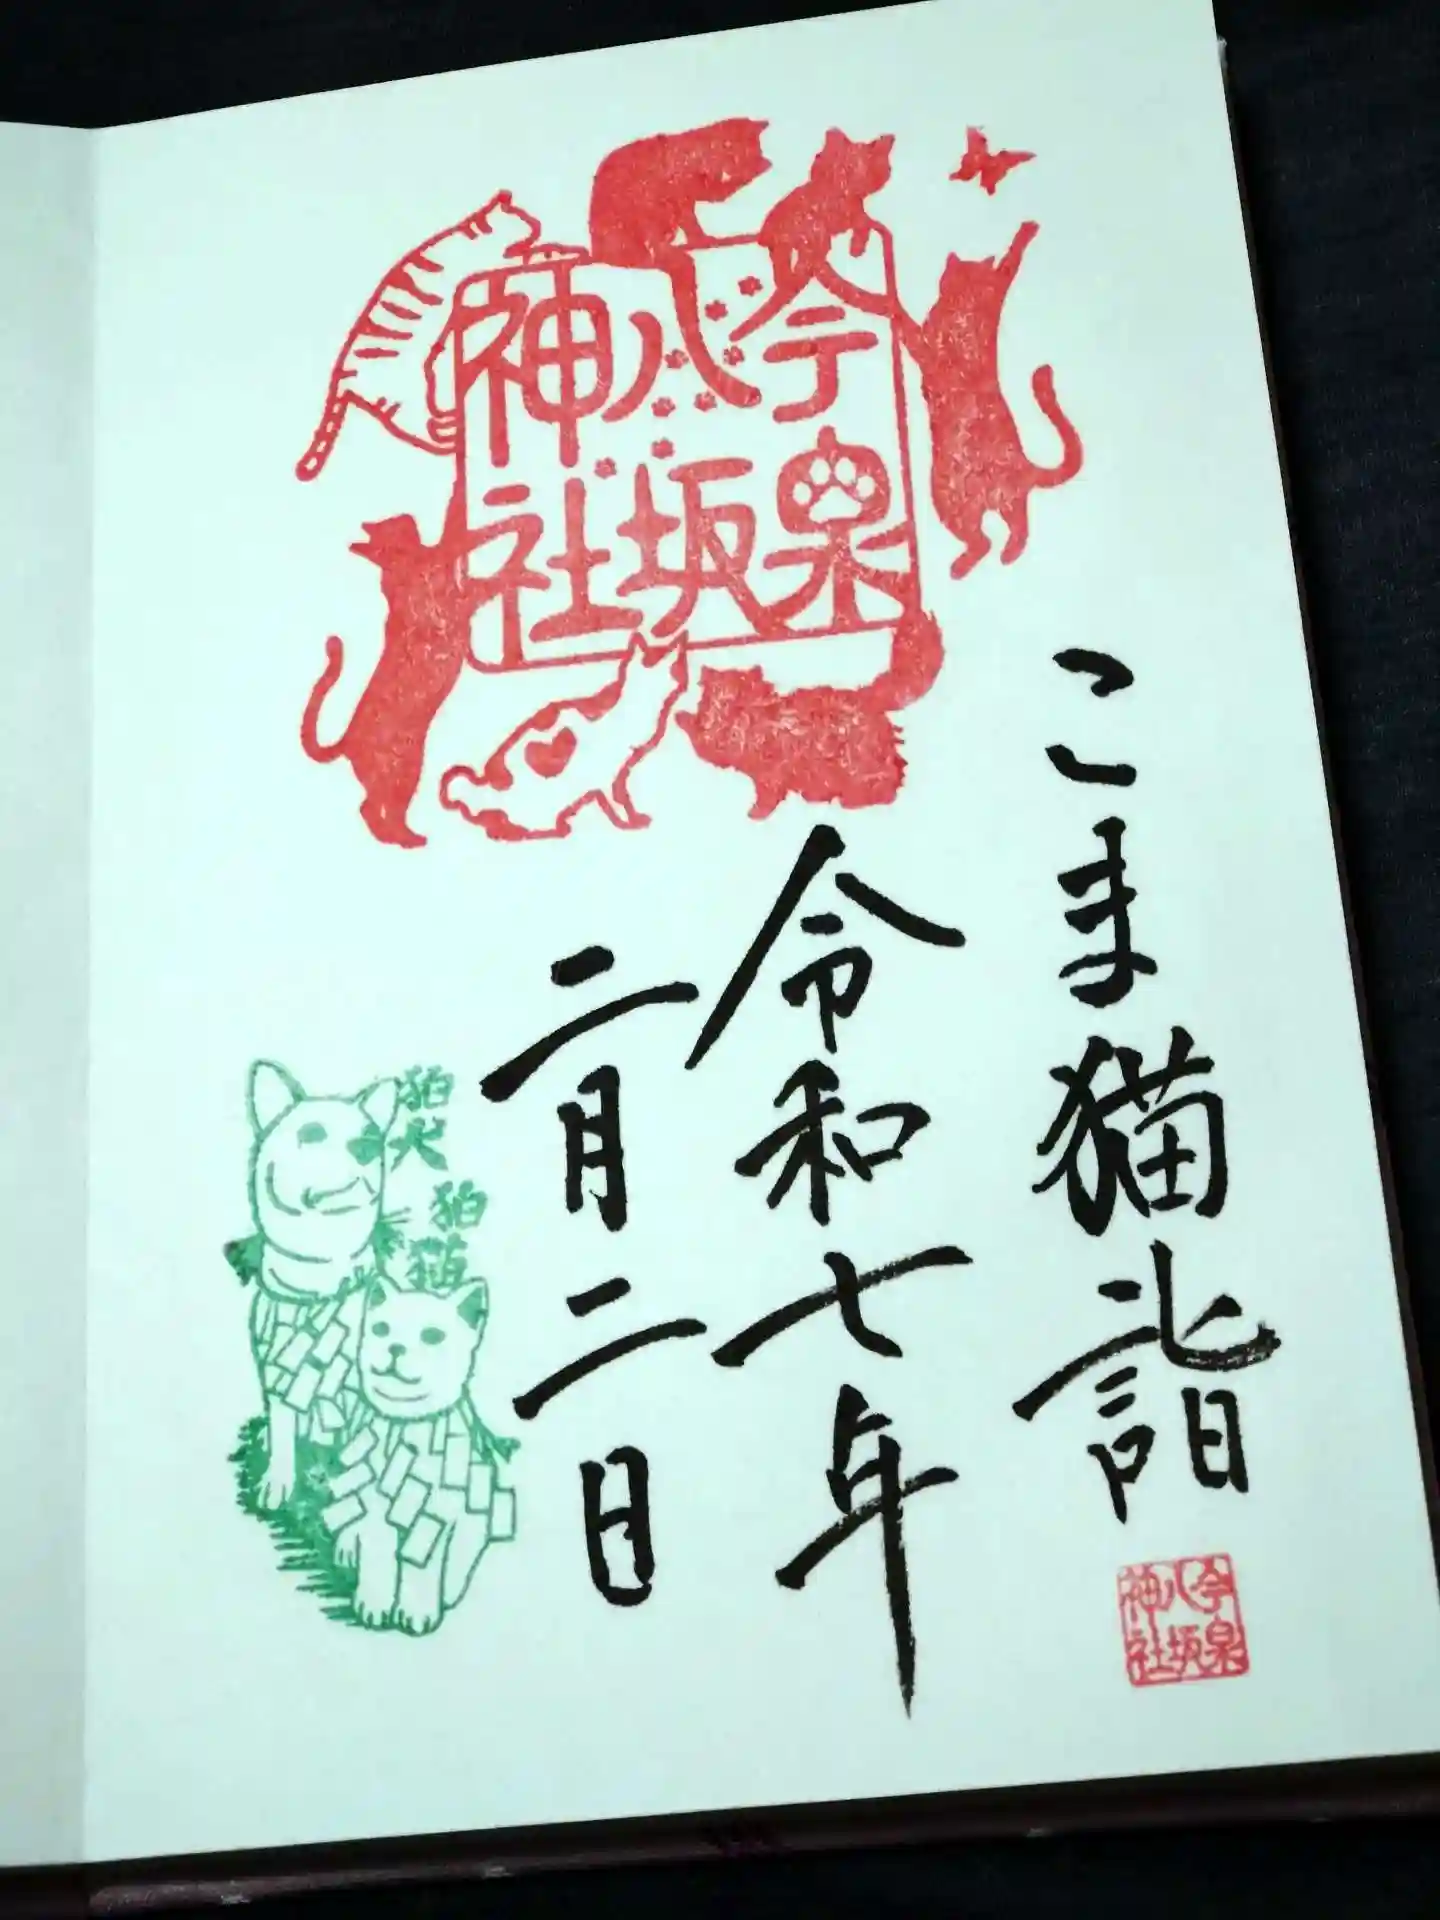 今泉
八坂
神社
こま猫詣
令和七年
二月二日
狛犬
狛猫
今泉
八坂
神社